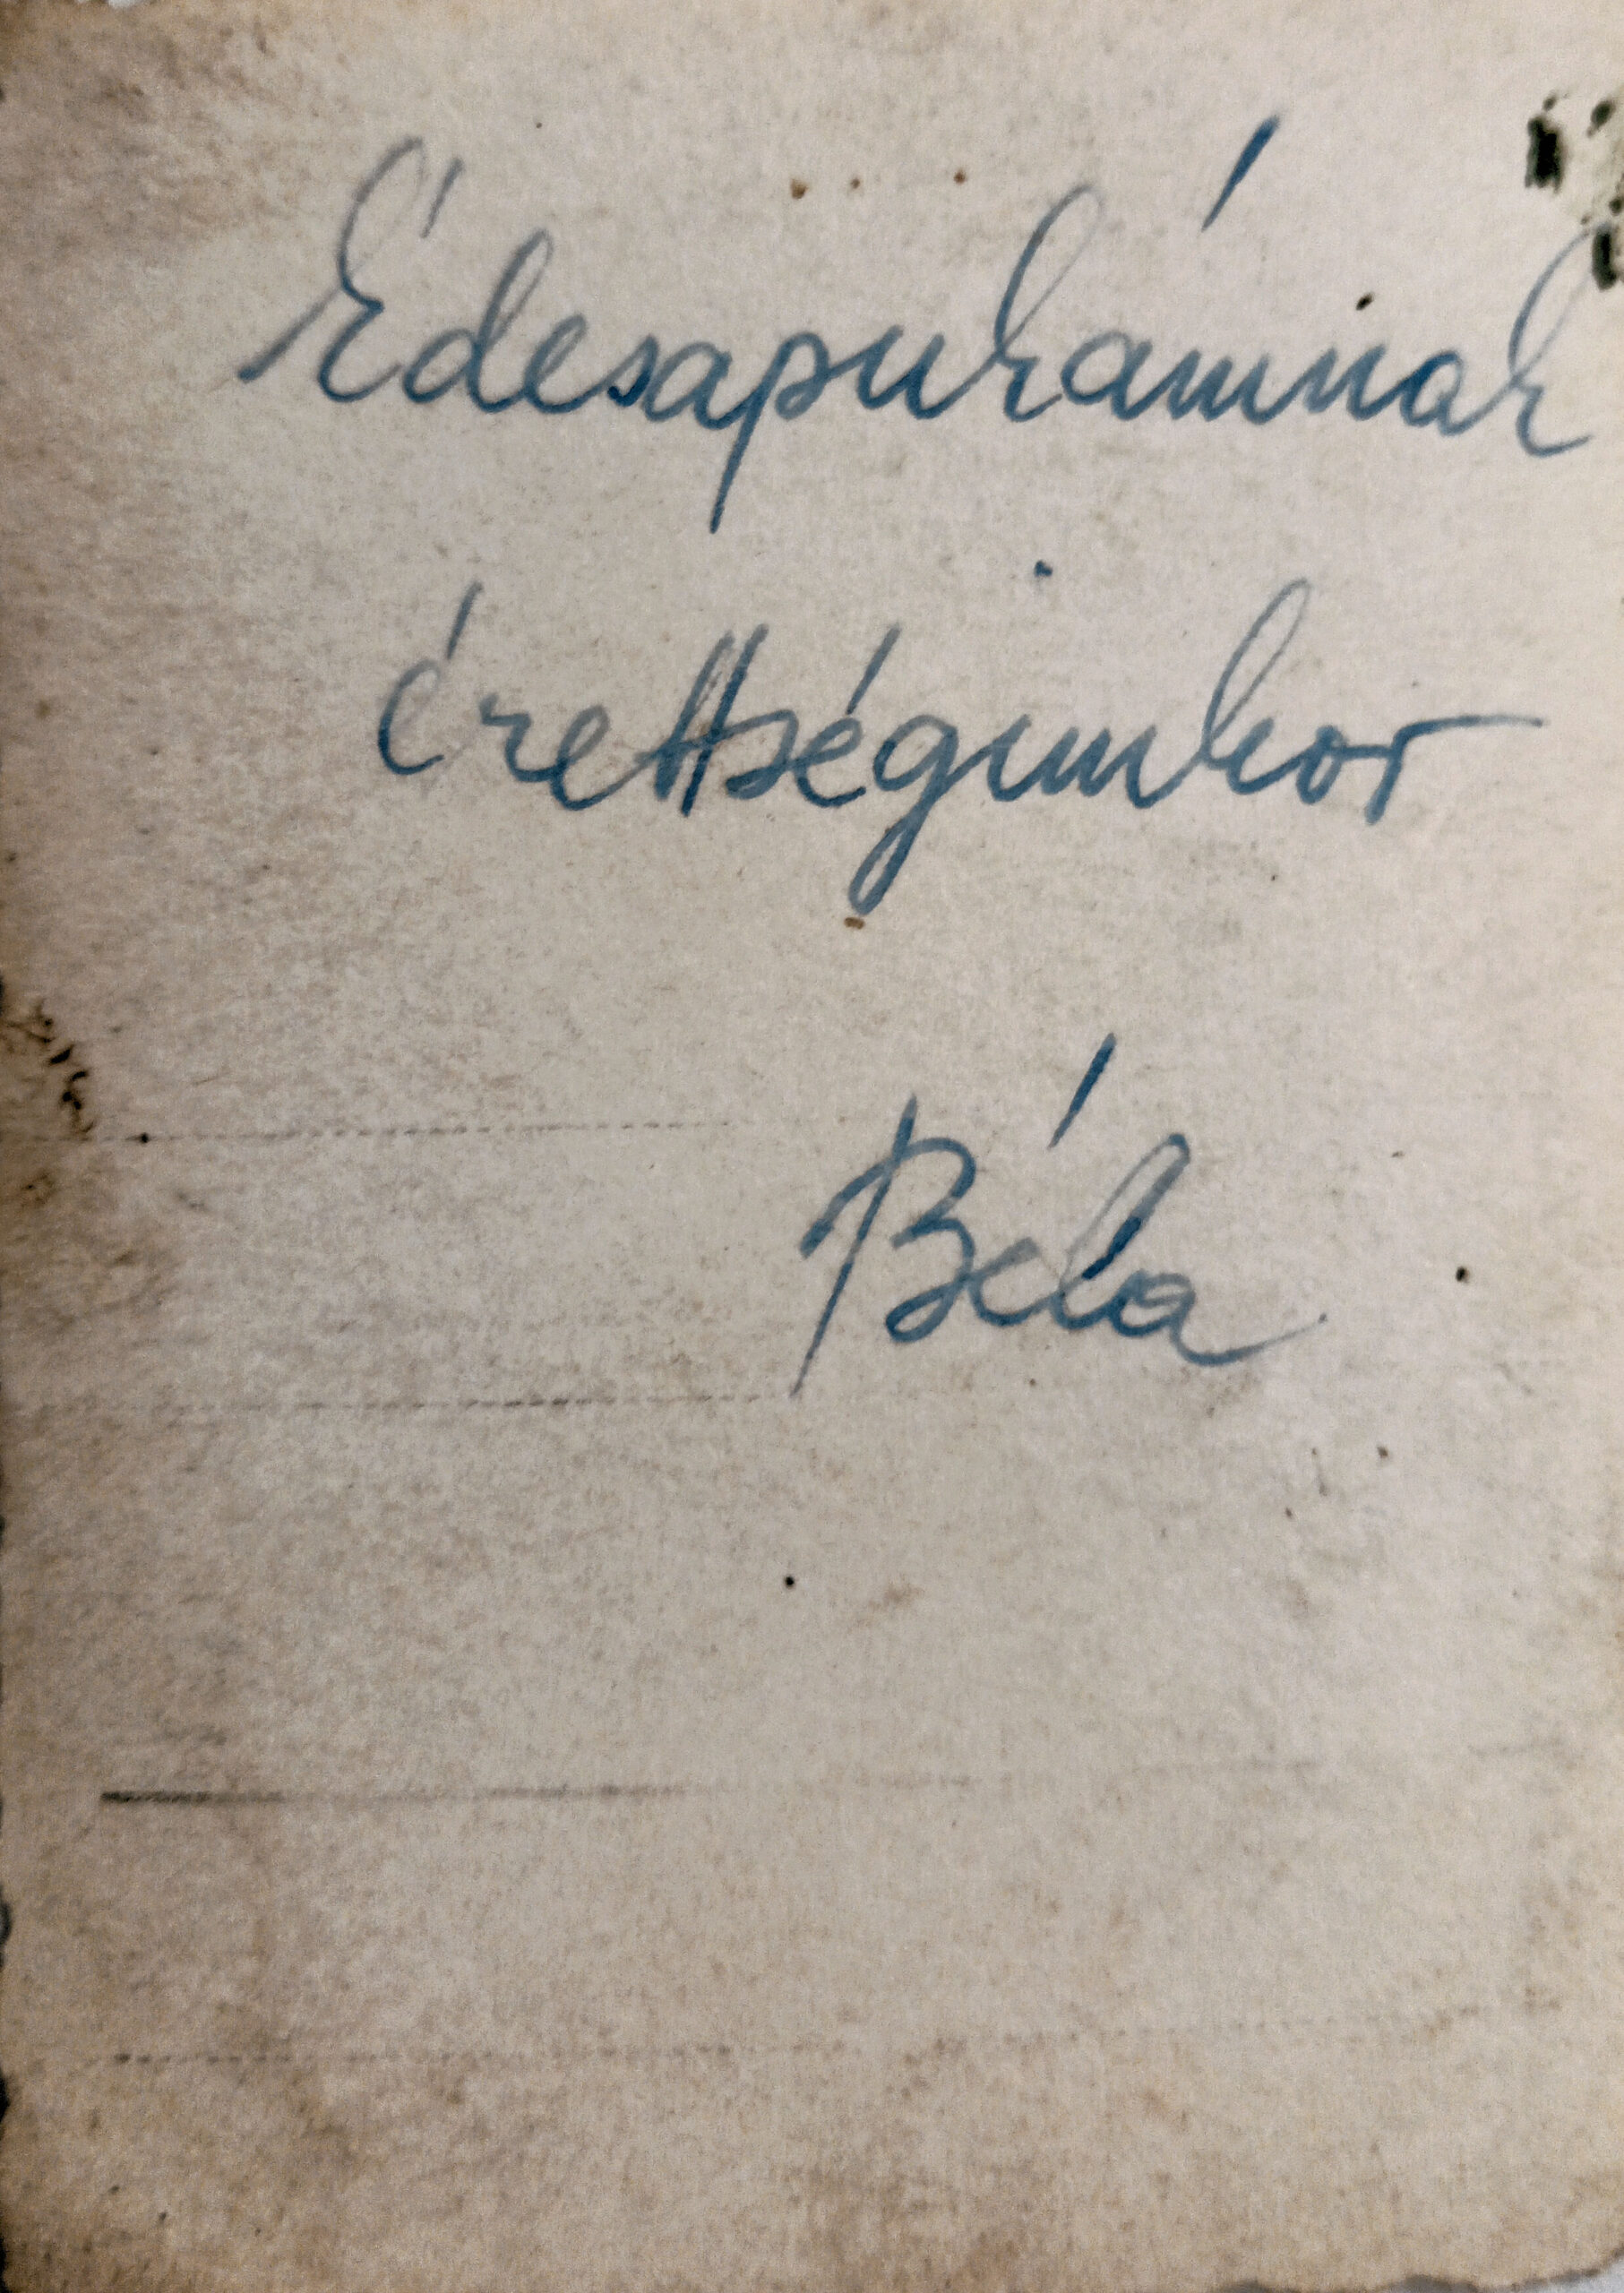 Édesapukámnak
érettségimkor
Béla